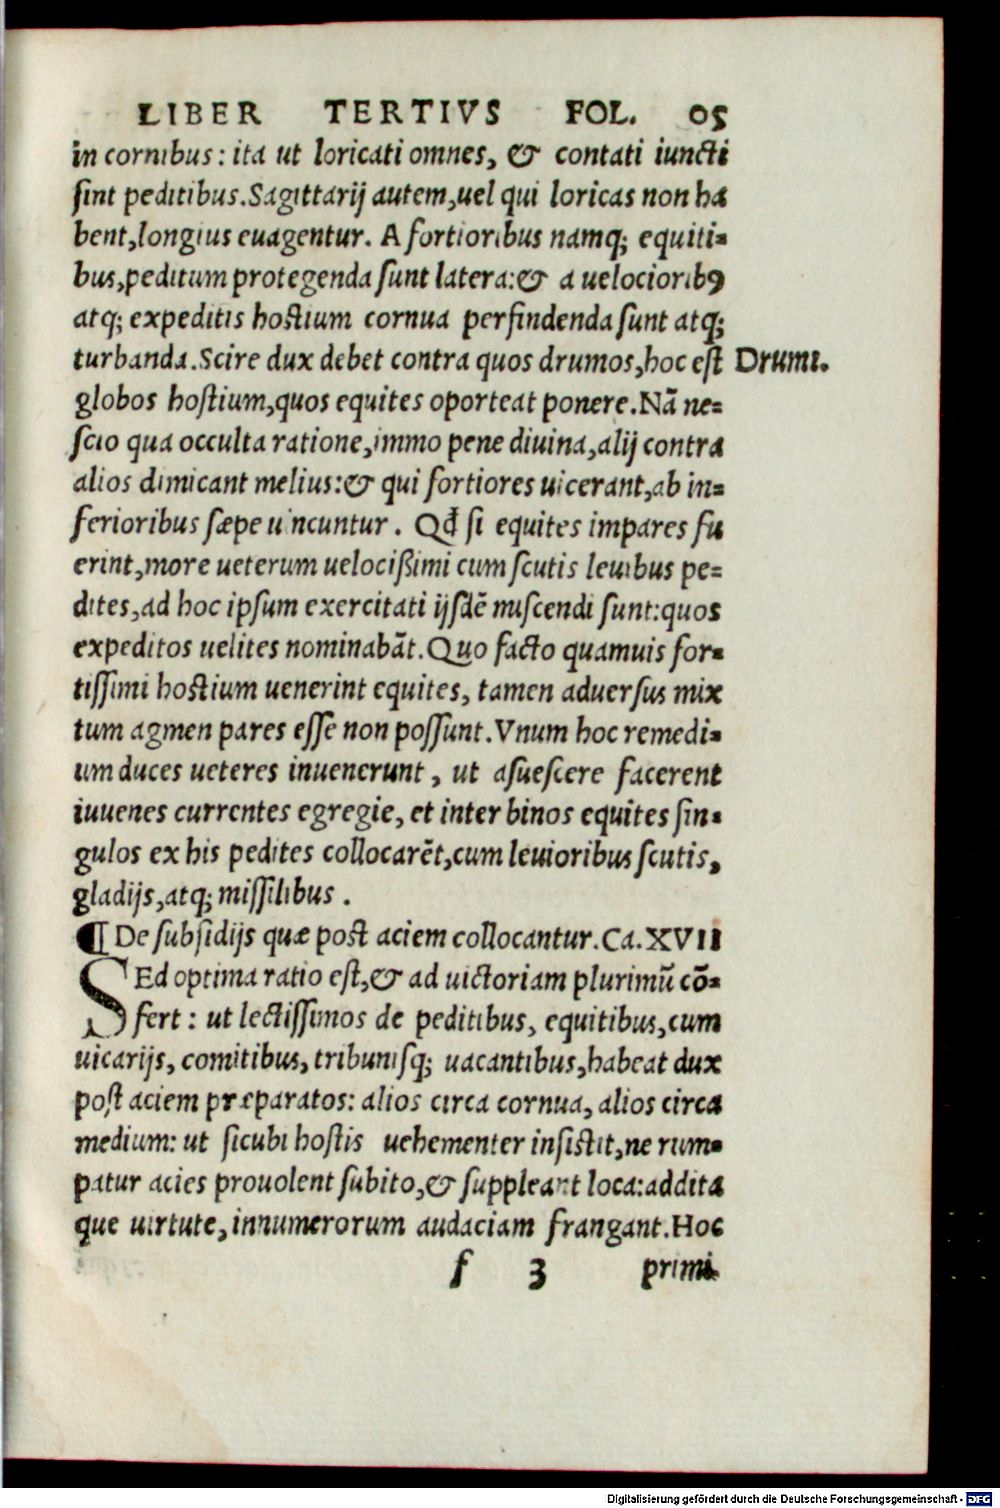 LIBER TERTIVS FOL. 05
in cornibus: ita ut loricati omnes, & contati iuncti
ſint peditibus. Sagittarij autem, uel qui loricas non ha
bent, longius euagentur. A fortioribus namq; equiti-
bus, peditum protegenda ſunt latera: & a uelocioribꝰ
atq; expeditis hoſtium cornua perfindenda ſunt atq;
turbanda. Scire dux debet contra quos drumos, hoc eſt Drumi.
globos hoſtium, quos equites oporteat ponere. Nã ne=
ſcio qua occulta ratione, immo pene diuina, alij contra
alios dimicant melius: & qui fortiores uicerant, ab in=
ferioribus ſæpe uincuntur. Qđ ſi equites impares fu
erint, more ueterum uelocißimi cum ſcutis leuibus pe=
dites, ad hoc ipſum exercitati ijſdẽ miſcendi ſunt: quos
expeditos uelites nominabãt. Quo facto quamuis for-
tiſſimi hoſtium uenerint equites, tamen aduerſus mix
tum agmen pares eſſe non poſſunt. Vnum hoc remedi-
um duces ueteres inuenerunt, ut aſueſcere facerent
iuuenes currentes egregie, et inter binos equites ſin-
gulos ex his pedites collocarẽt, cum leuioribus ſcutis,
gladijs, atq; miſſilibus.
¶ De ſubſidijs quæ poſt aciem collocantur. Ca. XVII
SEd optima ratio eſt, & ad uictoriam plurimũ cõ-
fert: ut lectiſſimos de peditibus, equitibus, cum
uicarijs, comitibus, tribuniſq; uacantibus, habeat dux
poſt aciem præparatos: alios circa cornua, alios circa
medium: ut ſicubi hoſtis uehementer inſiſtit, ne rum-
patur acies prouolent ſubito, & ſuppleant loca: addita
que uirtute, innumerorum audaciam frangant. Hoc
f 3 primi
Digitalisierung gefördert durch die Deutsche Forschungsgemeinschaft - DFG